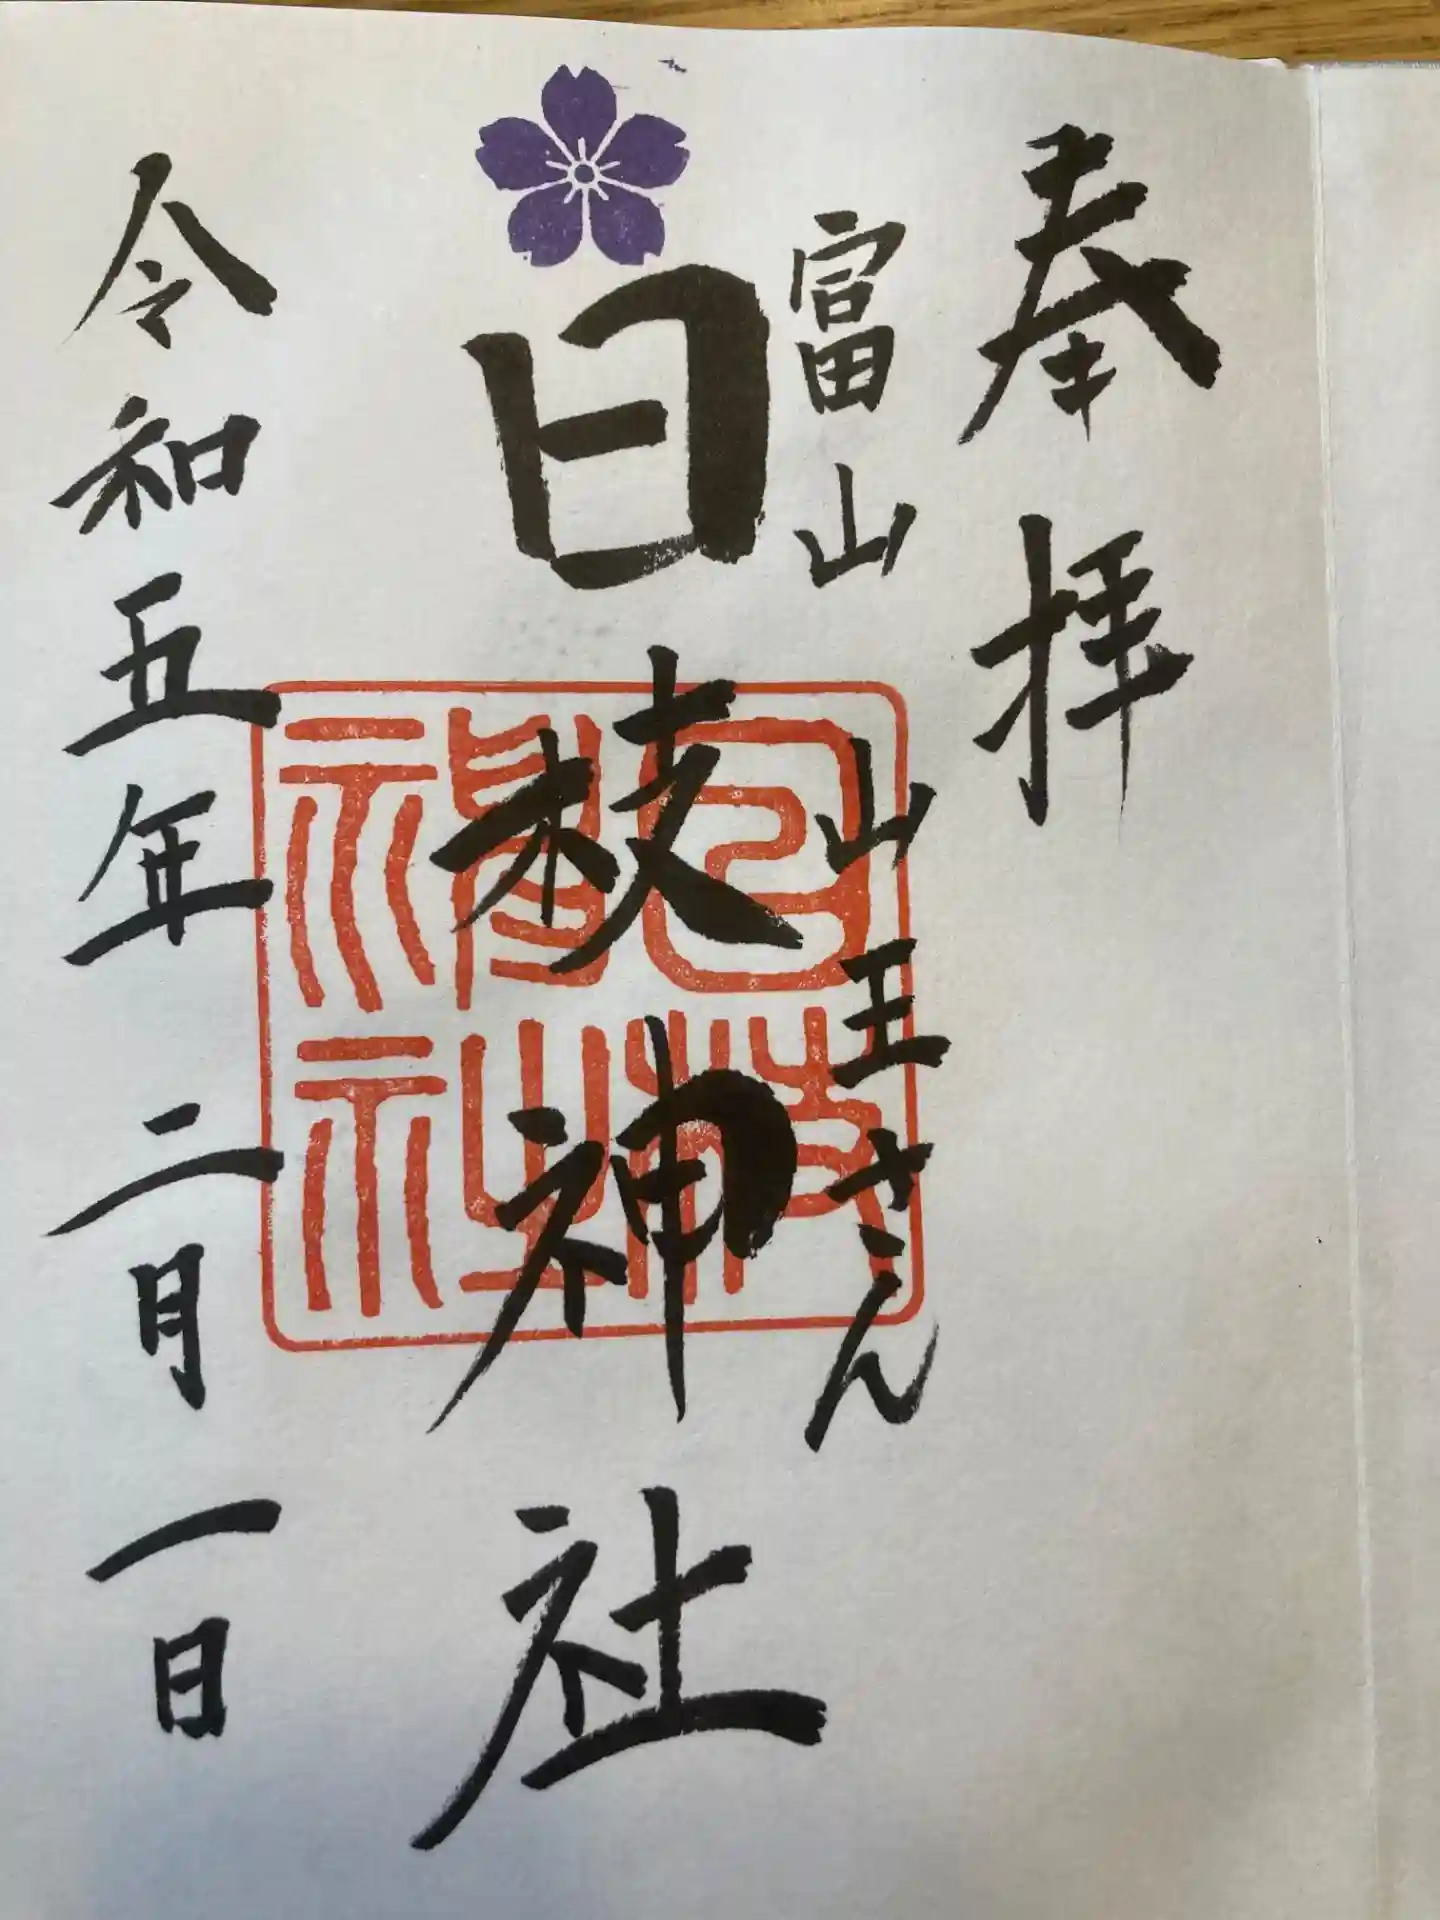 奉拝
富山 山王さん
日枝神社
日枝神社
令和五年二月一日